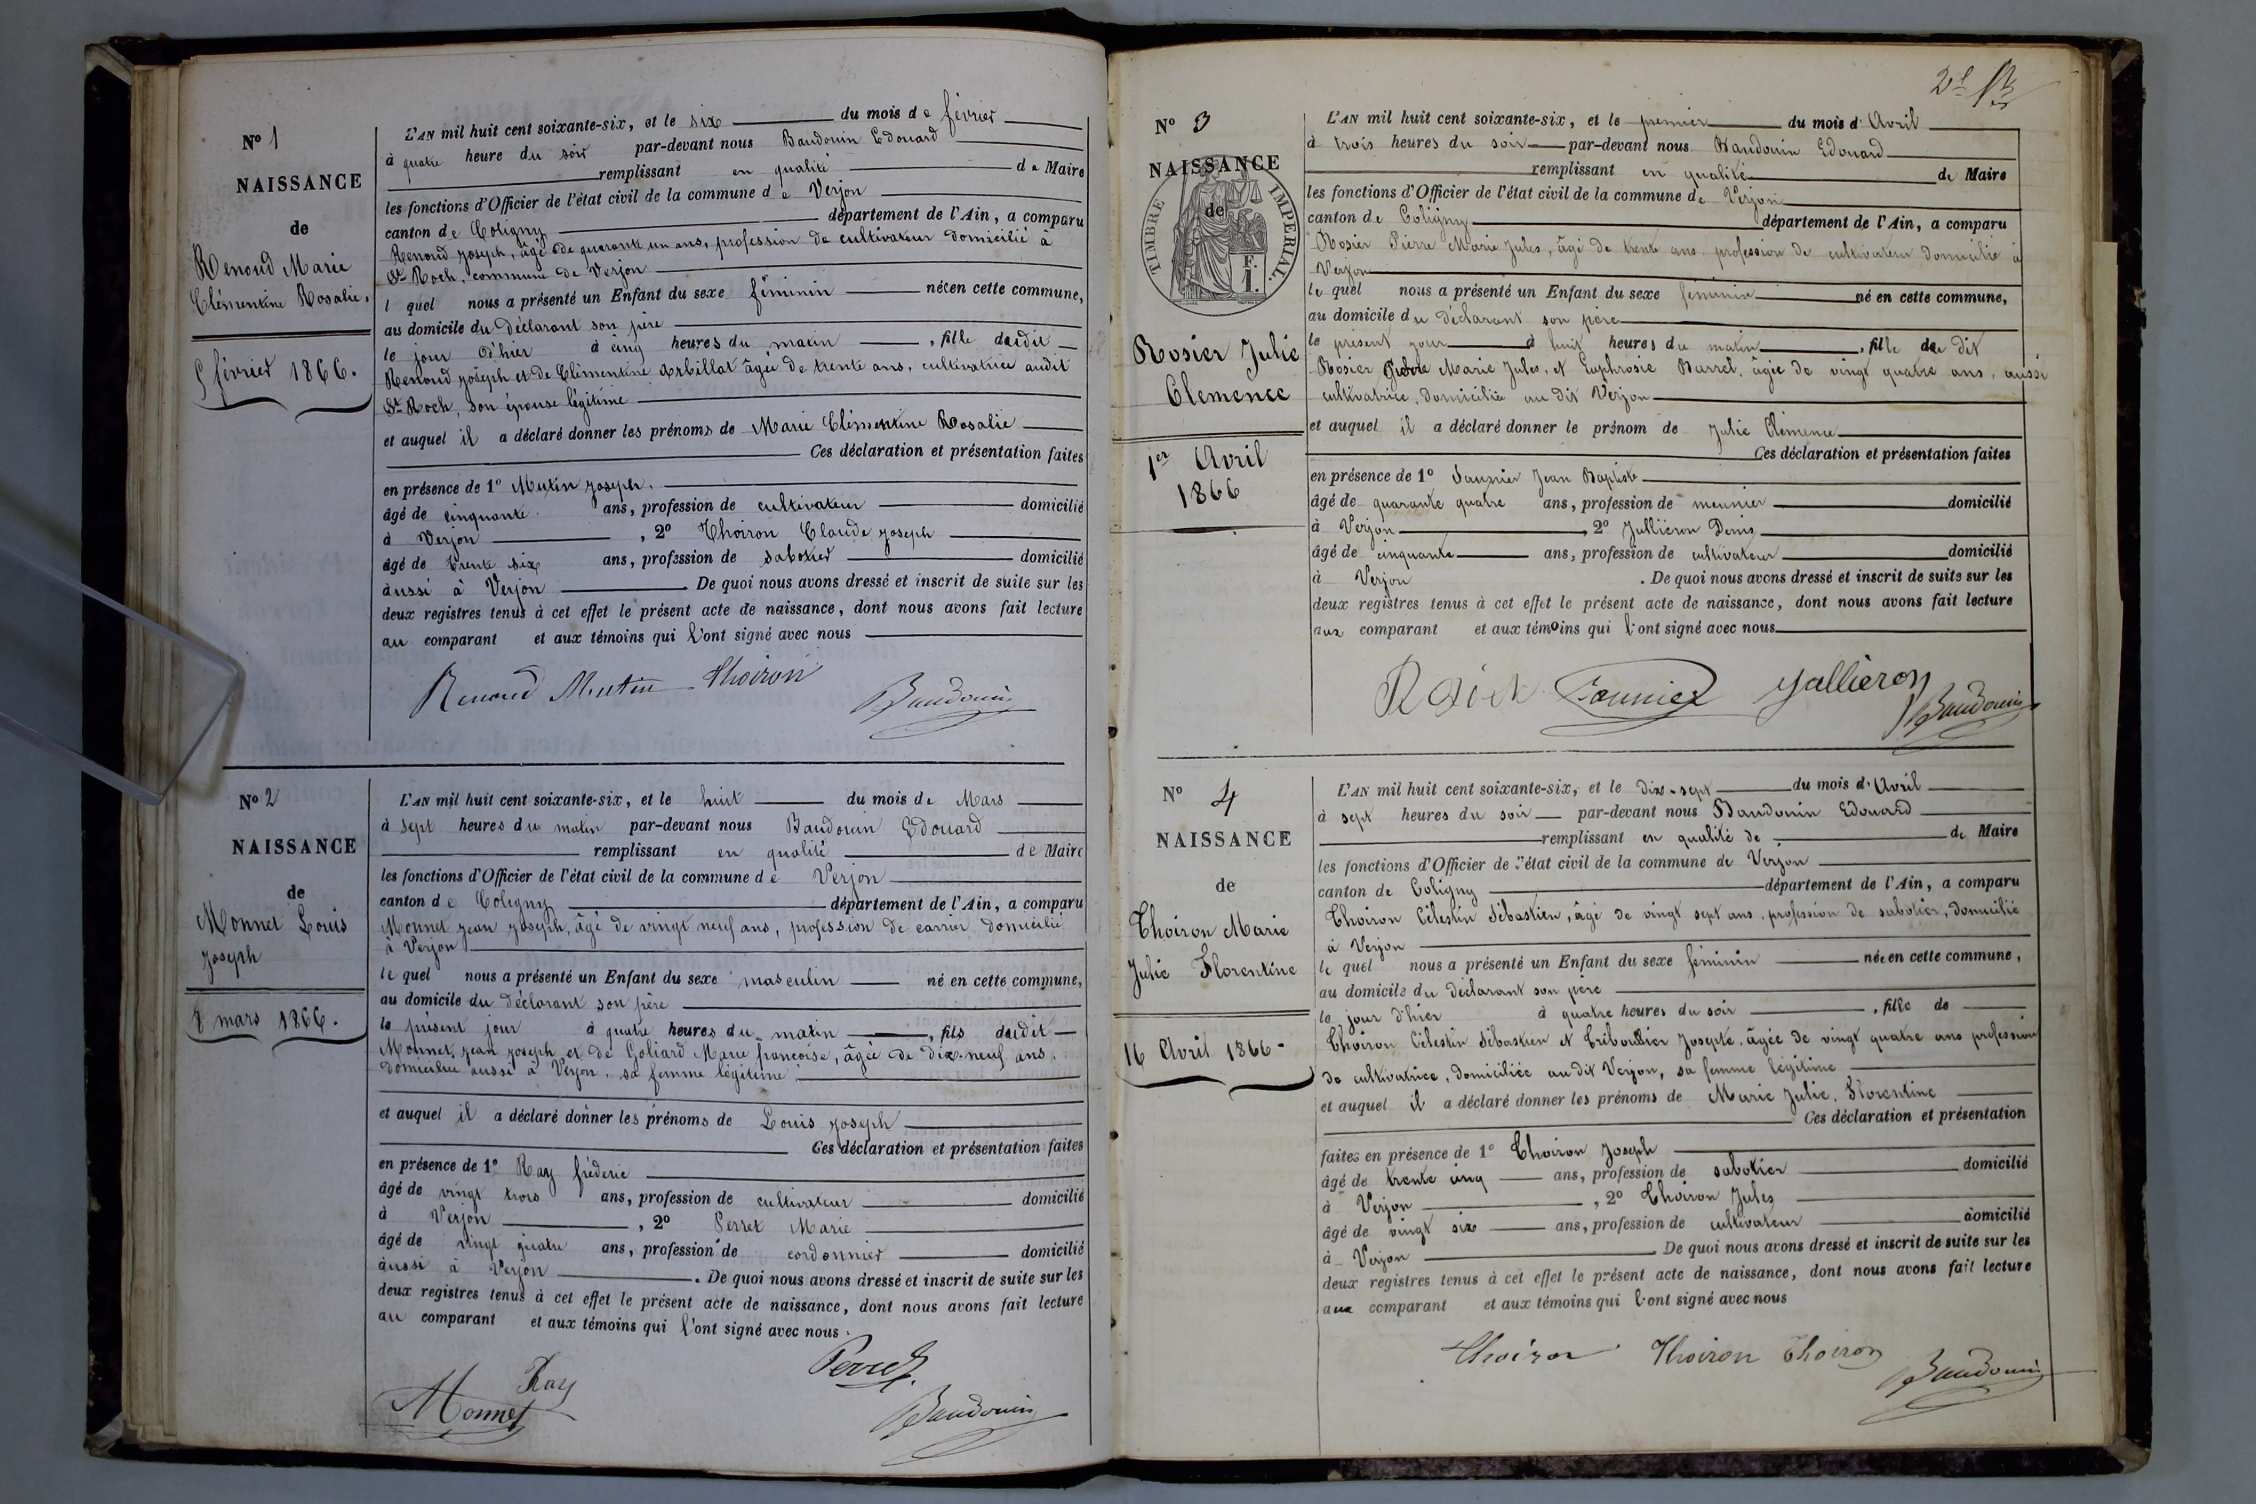 N° 1
NAISSANCE
de
Renoud Marie
Clémentine Rosalie,
5 février 1866.
L'AN mil huit cent soixante-six, et le six du mois de février
à quatre heure du soir par-devant nous Baudouin Edouard
remplissant en qualité de Maire
les fonctions d'Officier de l'état civil de la commune de Verjon
canton de Coligny département de l'Ain, a comparu
Renoud Joseph, âgé de quarante un ans, profession de cultivateur domicilié à
St Roch, commune de Verjon
l quel nous a présenté un Enfant du sexe féminin née en cette commune,
au domicile du déclarant son père
le jour d'hier à cinq heures du matin, fille dudit
Renoud Joseph et de Clémentine Orbillat âgée de trente ans, cultivatrice audit
St Roch, son épouse légitime
et auquel il a déclaré donner les prénoms de Marie Clémentine Rosalie
Ces déclaration et présentation faites
en présence de 1° Mutin Joseph.
âgé de cinquante ans, profession de cultivateur domicilié
à Verjon, 2° Thoiron Claude Joseph
âgé de trente six ans, profession de sabotier domicilié
aussi à Verjon De quoi nous avons dressé et inscrit de suite sur les
deux registres tenus à cet effet le présent acte de naissance, dont nous avons fait lecture
au comparant et aux témoins qui l'ont signé avec nous
Renoud Mutin Thoiron
Baudouin
N° 2
NAISSANCE
de
Monnet Louis
Joseph
8 mars 1866.
L'AN mil huit cent soixante-six, et le huit du mois de Mars
à sept heures du matin par-devant nous Baudouin Edouard
remplissant en qualité de Maire
les fonctions d'Officier de l'état civil de la commune de Verjon
canton de Coligny département de l'Ain, a comparu
Monnet Jean Joseph, âgé de vingt neuf ans, profession de carrier domicilié
à Verjon
le quel nous a présenté un Enfant du sexe masculin né en cette commune,
au domicile du déclarant son père
le présent jour à quatre heures du matin, fils dudit
Monnet Jean Joseph et de Goliard Marie françoise, âgée de dix-neuf ans,
domiciliée aussi à Verjon, sa femme légitime
et auquel il a déclaré donner les prénoms de Louis Joseph
Ces déclaration et présentation faites
en présence de 1° Ray fréderic
âgé de vingt trois ans, profession de cultivateur domicilié
à Verjon, 2° Perret Marie
âgé de vingt quatre ans, profession de cordonnier domicilié
aussi à Verjon. De quoi nous avons dressé et inscrit de suite sur les
deux registres tenus à cet effet le présent acte de naissance, dont nous avons fait lecture
au comparant et aux témoins qui l'ont signé avec nous.
Perret
Ray
Monnet
Baudouin
N° 3
NAISSANCE
de
TIMBRE IMPERIAL
F.
1.
Rosier Julie
Clemence
1er Avril
1866
L'AN mil huit cent soixante-six, et le premier du mois d'Avril
à trois heures du soir par-devant nous Baudouin Edouard
remplissant en qualité de Maire
les fonctions d'Officier de l'état civil de la commune de Verjon
canton de Coligny département de l'Ain, a comparu
Rosier Pierre Marie Jules, âgé de trente ans profession de cultivateur domicilié à
Verjon
le quel nous a présenté un Enfant du sexe feminin né en cette commune,
au domicile du déclarant son père
le présent jour à huit heures du matin, fille de dit
Rosier Marie Jules, et Euphrosie Barrel, âgée de vingt quatre ans, aussi
cultivatrice, domiciliée au dit Verjon
et auquel il a déclaré donner le prénom de Julie Clémence
Ces déclaration et présentation faites
en présence de 1° Saunier Jean Baptiste
âgé de quarante quatre ans, profession de meunier domicilié
à Verjon, 2° Jullieron Denis
âgé de cinquante ans, profession de cultivateur domicilié
à Verjon. De quoi nous avons dressé et inscrit de suite sur les
deux registres tenus à cet effet le présent acte de naissance, dont nous avons fait lecture
aux comparant et aux témoins qui l'ont signé avec nous
Rosier Saunier Jullieron
Baudouin
N° 4
NAISSANCE
de
Thoiron Marie
Julie Florentine
16 Avril 1866
L'AN mil huit cent soixante-six, et le dix-sept du mois d'Avril
à sept heures du soir par-devant nous Baudouin Edouard
remplissant en qualité de de Maire
les fonctions d'Officier de l'état civil de la commune de Verjon
canton de Coligny département de l'Ain, a comparu
Thoiron Célestin Sébastien, âgé de vingt sept ans, profession de sabotier, domicilié
à Verjon
le quel nous a présenté un Enfant du sexe féminin née en cette commune,
au domicile du déclarant son père
le jour d'hier à quatre heures du soir, fille de
Thoiron Célestin Sébastien et Triboullier Josepte, âgée de vingt quatre ans profession
de cultivatrice, domiciliée au dit Verjon, sa femme légitime
et auquel il a déclaré donner les prénoms de Marie Julie, Florentine
Ces déclaration et présentation
faites en présence de 1° Thoiron Joseph
âgé de trente cinq ans, profession de sabotier domicilié
à Verjon, 2° Thoiron Jules
âgé de vingt six ans, profession de cultivateur domicilié
à Verjon De quoi nous avons dressé et inscrit de suite sur les
deux registres tenus à cet effet le présent acte de naissance, dont nous avons fait lecture
aux comparant et aux témoins qui l'ont signé avec nous
Thoiron Thoiron Thoiron
Baudouin